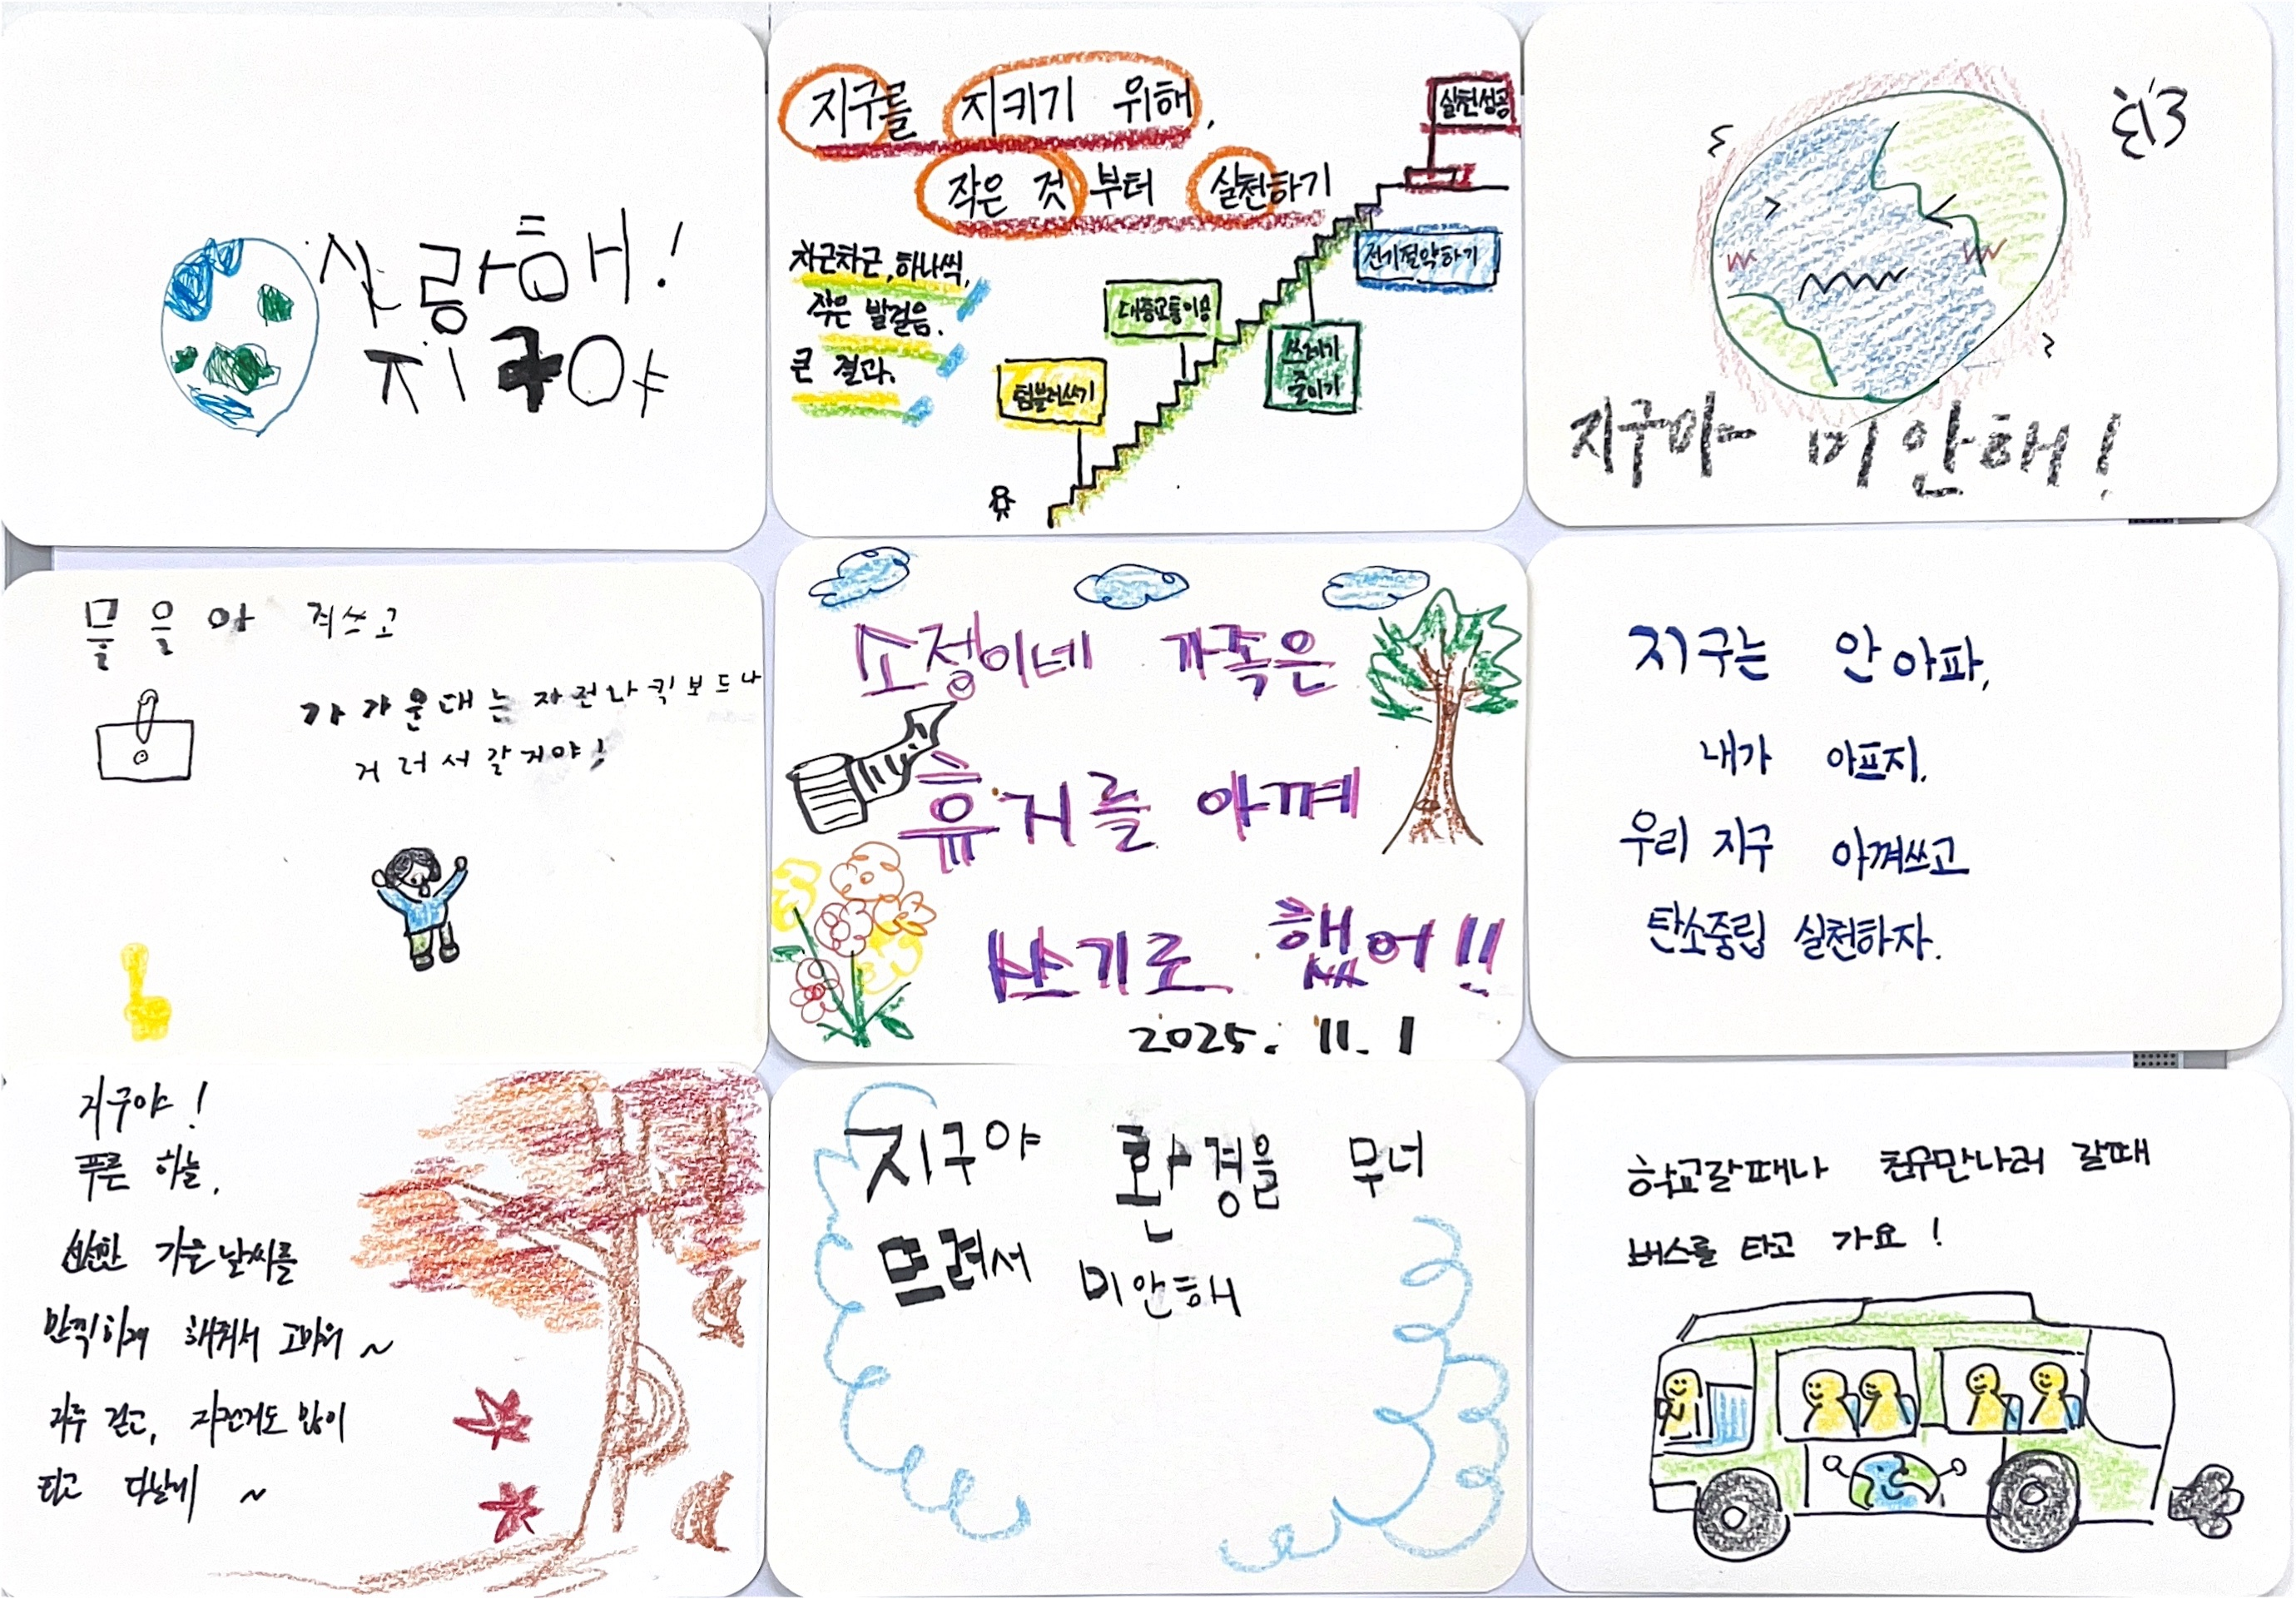 사랑해!
지구야
지구를 지키기 위해,
작은 것부터 실천하기
차근차근, 하나씩,
작은 발걸음.
큰 결과.
실천성공
전기절약하기
대중교통이용
쓰레기
줄이기
텀블러쓰기
지구야 미안해!
물을아 껴쓰고
가가운대는 자전나 킥보드나
거러서갈거야!
소정이네 가족은
휴지를 아껴
쓰기로 했어!!
2025. 11. 1
지구는 안아파,
내가 아프지.
우리 지구 아껴쓰고
탄소중립 실천하자.
지구야!
푸른 하늘,
선선한 가을날씨를
만끽하게 해줘서 고마워~
자주 걷고, 자전거도 많이
타고 다닐게 ~
지구야 환경을 무너
뜨려서 미안해
학교갈때나 친구만나러 갈때
버스를 타고 가요!